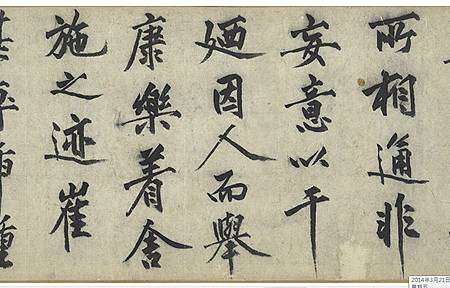 所相通非
妄意以干
廼因人而舉
康樂着舍
施之迹崔
2014年3月21日
星期五